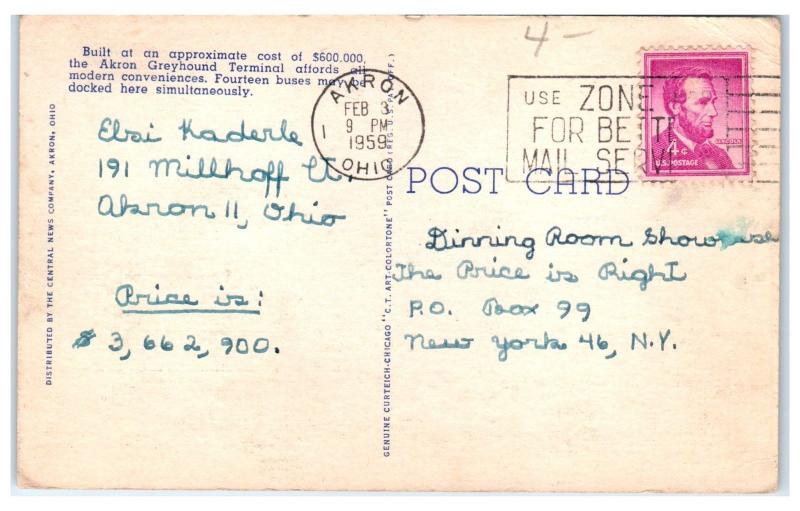 Built at an approximate cost of $600,000,
the Akron Greyhound Terminal affords all
modern conveniences. Fourteen buses may be
docked here simultaneously.
AKRON
FEB 3
9 PM
1959
OHIO
1
4-
USE ZONE
FOR BETT
MAIL SERV
4¢
U.S. POSTAGE
Elsi Kaderle
191 Millhoff Ct.
Akron 11, Ohio
Price is:
$3,662,900.
POST CARD
Dinning Room Showcase
The Price is Right
P.O. Box 99
New York 46, N.Y.
DISTRIBUTED BY THE CENTRAL NEWS COMPANY, AKRON, OHIO
GENUINE CURTEICH-CHICAGO "C.T. ART-COLORTONE" POST CARD (REG. U.S. PAT. OFF.)